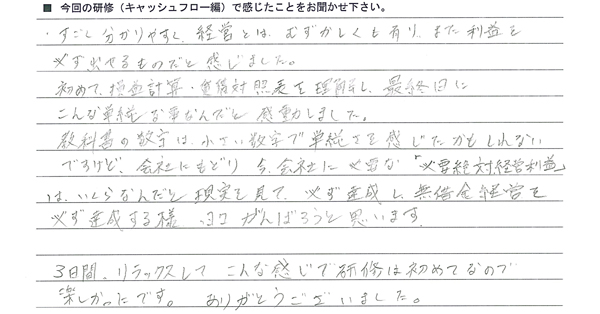 ■ 今回の研修（キャッシュフロー編）で感じたことをお聞かせ下さい。
・すごし分かりやすく、経営とは、むずかしくも有り、また利益を
必ず出せるものだと感じました。
初めて、損益計算・貸借対照表を理解し、最終日に
こんな単純な事なんだと感動しました。
教科書の数字は、小さい数字で単純さを感じたかもしれない
でるけど、会社にもどり 今、会社に必要な「必要絶対経営利益」
は、いくらなんだと現実を見て、必ず達成し、無借金経営を
必ず達成する様、ヨコ がんばろうと思います。
3日間、リラックスして こんな感じで研修は初めてなので
楽しかったです。 ありがとうございました。